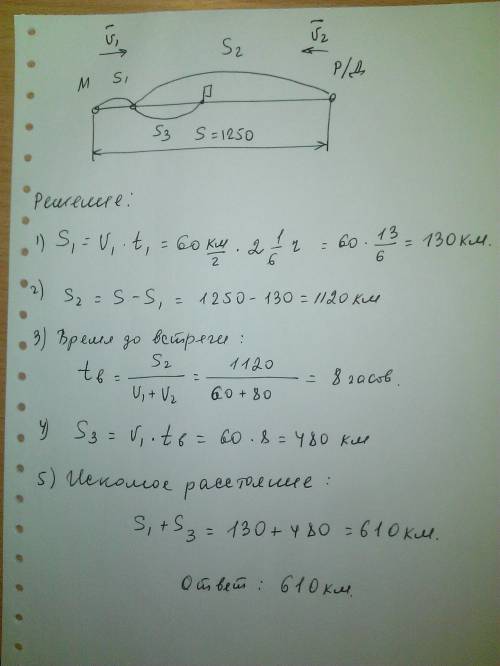 V̄₁ S₂ V̄₂
М S₁ Р/Д
S₃ S = 1250
Решение:
1) S₁ = V₁ · t₁ = 60 км/ч · 2 1/6 ч = 60 · 13/6 = 130 км.
2) S₂ = S - S₁ = 1250 - 130 = 1120 км
3) Время до встречи:
tв = S₂/(V₁ + V₂) = 1120/(60 + 80) = 8 часов.
4) S₃ = V₁ · tв = 60 · 8 = 480 км
5) Искомое расстояние:
S₁ + S₃ = 130 + 480 = 610 км.
Ответ: 610 км.